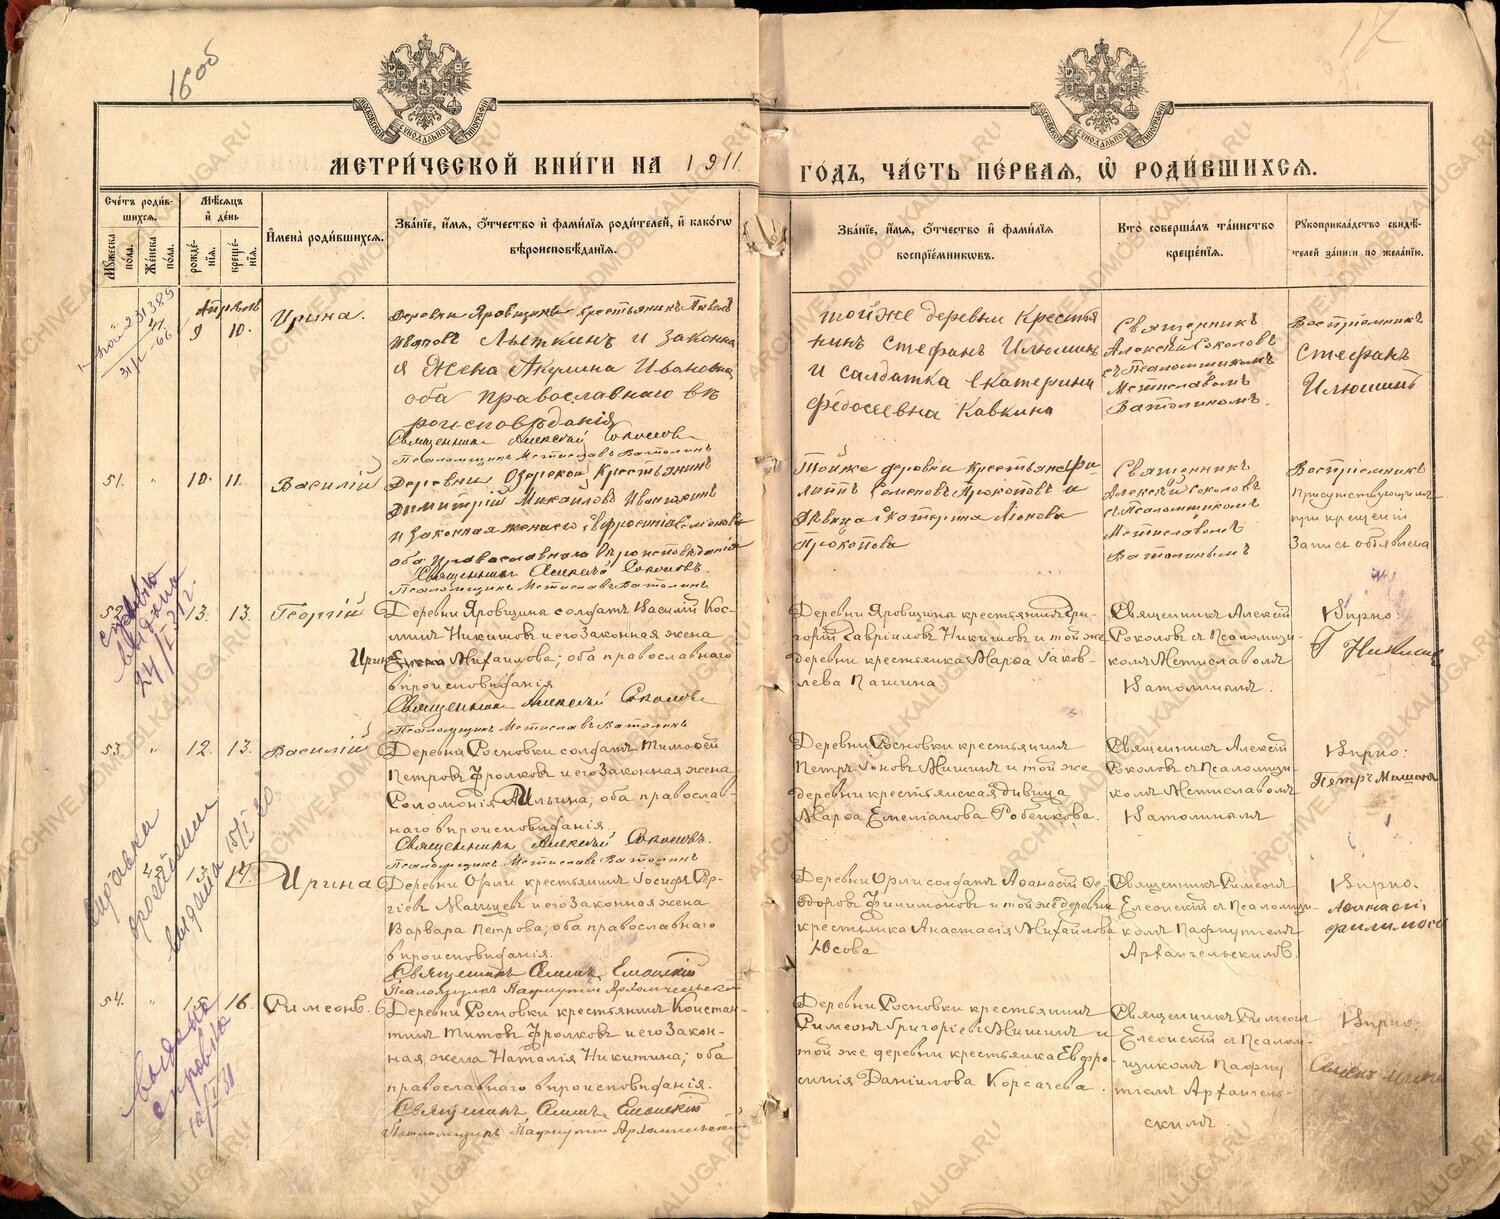 16об
17
МЕТРИ́ЧЕСКОЙ КНИ́ГИ НА 1911 ГО́ДЪ, ЧА́СТЬ ПЕ́РВАЯ, Ѡ РОДИ́ВШИХСЯ.
Сче́тъ роди́вшихся.
Мꙋ́жеска по́ла.
Же́нска по́ла.
Мѣ́сяцъ и҆ де́нь
рожде́нїя.
креще́нїя.
И҆мена̀ роди́вшихся.
Зва́нїе, и҆́мя, ѻ҆́тчество и҆ фами́лїя роди́телей, и҆ како́гѡ
вѣроисповѣ́данїя.
Зва́нїе, и҆́мя, ѻ҆́тчество и҆ фами́лїя
воспрїе́мникѡвъ.
Кто̀ соверша́лъ та́инство
креще́нїя.
Рꙋкоприкла́дство свидѣ́телей за́писи по жела́нїю.
Апрѣль
9 10. Ирина.
Деревни Яровщины крестьянинъ Павелъ
Ивановъ Лыткинъ и законна
я жена Акулина Ивановна
оба православнаго вѣ
роисповѣданія
Священникъ Алексій Соколовъ
Псаломщикъ Мстиславъ Ватолинъ
той же деревни Крестья
нинъ Стефанъ Илюшинъ
и салдатка Екатерина
Федосеевна Кавкина
Священникъ
Алексѣй Соколовъ
съ Псаломщикомъ
Мстиславомъ
Ватолинымъ.
Воспріемникъ
Стефанъ
Илюшинъ
51. " 10. 11. Василій
Деревни Озерской Крестьянинъ
Димитрій Михайловъ
и законная жена его Евфросинія Семіонова
оба православнаго вѣроисповѣданія
Священникъ Алексій Соколовъ.
Псаломщикъ Мстиславъ Ватолинъ
Той же деревни крестьяне Фи
липпъ Семеновъ Прокоповъ и
дѣвица Екатерина
Прокопова
Священникъ
Алексѣй Соколовъ
съ Псаломщикомъ
Мстиславомъ
Ватолинымъ
Воспріемникъ
присутствующимъ
при крещеніи
Запись объявлена
52. 13. 13. Георгій
Деревни Яровщины солдатъ Василій Кос-
минъ Никишовъ и его законная жена
Ирина Михаилова; оба православнаго
вѣроисповѣданія
Священникъ Алексій Соколовъ
Псаломщикъ Мстиславъ Ватолинъ
Деревни Яровщины крестьянинъ Гри-
горій Гавріиловъ Никишовъ и той же
деревни крестьянка Марѳа Іаков-
лева Пашина
Священникъ Алексій
Соколовъ съ Псаломщи-
комъ Мстиславомъ
Ватолинымъ.
Вѣрно:
Г Никиш
53. " 12. 13. Василій
Деревни Сосновки солдатъ Тимоѳей
Петровъ Фролковъ и его законная жена
Соломонія Ильина; оба православ-
наго вѣроисповѣданія
Священникъ Алексій Соколовъ.
Псаломщикъ Мстиславъ Ватолинъ
Деревни Сосновки крестьянинъ
Петръ Іоновъ Мишинъ и той же
деревни крестьянская дѣвица
Марѳа Емеліанова Робенкова.
Священникъ Алексій
Соколовъ съ Псаломщи-
комъ Мстиславомъ
Ватолинымъ
Вѣрно:
Петръ Мишинъ
13 14. Ирина
Деревни Орли крестьянинъ Іосифъ Сер-
гіевъ Мальцевъ и его законная жена
Варвара Петрова; оба православнаго
вѣроисповѣданія.
Священникъ Симеонъ Елеонскій
Псаломщикъ Пафнутій Архангельскій
Деревни Орли солдатъ Аѳанасій Ѳе-
одоровъ Филимоновъ и той же деревни
крестьянка Анастасія Михайлова
Юсова
Священникъ Симеонъ
Елеонскій съ Псаломщи-
комъ Пафнутіемъ
Архангельскимъ.
Вѣрно.
Аѳанасій
филимонов
54. " 15 16. Симеонъ.
Деревни Сосновки крестьянинъ Констан-
тинъ Титовъ Фролковъ и его закон-
ная жена Наталія Никитина; оба
православнаго вѣроисповѣданія.
Священникъ Симеонъ Елеонскій
Псаломщикъ Пафнутій Архангельскій
Деревни Сосновки крестьянинъ
Симеонъ Григоріевъ Мишинъ и
той же деревни крестьянка Евфро-
синія Даніилова Корсачева.
Священникъ Симеонъ
Елеонскій съ Псалом-
щикомъ Пафну
тіемъ Архангель-
скимъ.
Вѣрно:
справка
выдана
ARCHIVE.ADMOBLKALUGA.RU